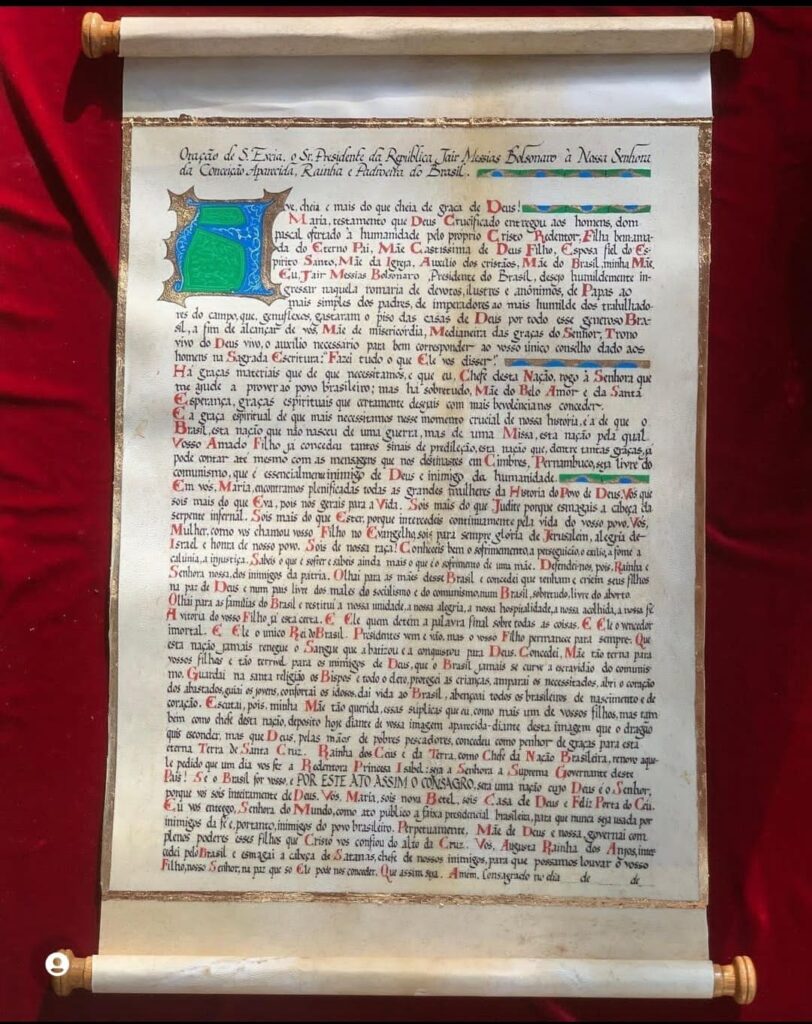 Oração de S. Excia. o Sr. Presidente da República Jair Messias Bolsonaro à Nossa Senhora
da Conceição Aparecida, Rainha e Padroeira do Brasil.
Ave, cheia e mais do que cheia de graça de Deus!
Maria, testamento que Deus Crucificado entregou aos homens, dom
pascal ofertado à humanidade pelo próprio Cristo Redentor, Filha bem-ama-
da do Eterno Pai, Mãe Castíssima de Deus Filho, Esposa fiel do Es-
pírito Santo, Mãe da Igreja, Auxílio dos cristãos, Mãe do Brasil, minha Mãe,
Eu, Jair Messias Bolsonaro, Presidente do Brasil, desejo humildemente in-
gressar naquela romaria de devotos, ilustres e anônimos, de Papas ao
mais simples dos padres, de imperadores ao mais humilde dos trabalhado-
res do campo, que, genuflexos, gastaram o piso das casas de Deus por todo esse generoso Bra-
sil, a fim de alcançar de vós, Mãe de misericórdia, Medianeira das graças do Senhor, Trono
vivo do Deus vivo, o auxílio necessário para bem corresponder ao vosso único conselho dado aos
homens na Sagrada Escritura: "Fazei tudo o que Ele vos disser".
Há graças materiais que de que necessitamos, e que eu, Chefe desta Nação, rogo à Senhora que
me ajude a prover ao povo brasileiro; mas há sobretudo, Mãe do Belo Amor e da Santa
Esperança, graças espirituais que certamente desejais com mais benevolência nos conceder.
E a graça espiritual de que mais necessitamos nesse momento crucial de nossa história, é a de que o
Brasil, esta nação que não nasceu de uma guerra, mas de uma Missa, esta nação pela qual
Vosso Amado Filho já concedeu tantos sinais de predileção, esta nação que, dentre tantas graças, já
pode contar até mesmo com as mensagens que nos destinastes em Cimbres, Pernambuco, seja livre do
comunismo, que é essencialmente inimigo de Deus e inimigo da humanidade.
Em vós, Maria, encontramos plenificadas todas as grandes mulheres da História do Povo de Deus. Vós que
sois mais do que Eva, pois nos gerais para a Vida. Sois mais do que Judite porque esmagais a cabeça da
serpente infernal. Sois mais do que Ester, porque intercedeis continuamente pela vida do vosso povo. Vós,
Mulher, como vos chamou vosso Filho no Evangelho, sois para sempre, glória de Jerusalém, alegria de
Israel e honra de nosso povo. Sois de nossa raça! Conheceis bem o sofrimento, a perseguição, o exílio, a fome, a
calúnia, a injustiça. Sabeis o que é sofrer e sabeis ainda mais o que é o sofrimento de uma mãe. Defendei-nos, pois, Rainha e
Senhora nossa, dos inimigos da pátria. Olhai para as mães desse Brasil e concedei que tenham e criem seus filhos
na paz de Deus e num país livre dos males do socialismo e do comunismo, num Brasil, sobretudo, livre do aborto.
Olhai para as famílias do Brasil e restituí a nossa unidade, a nossa alegria, a nossa hospitalidade, a nossa acolhida, a nossa fé
A vitória do vosso Filho já está certa. É Ele quem detém a palavra final sobre todas as coisas. É Ele o vencedor
imortal. É Ele o único Rei do Brasil. Presidentes vem e vão, mas o vosso Filho permanece para sempre. Que
esta nação jamais renegue o Sangue que a batizou e a conquistou para Deus. Concedei, Mãe tão terna para
vossos filhos e tão terrível para os inimigos de Deus, que o Brasil jamais se curve a escravidão do comunis-
mo. Guardai na santa religião os Bispos e todo o clero, protegei as crianças, amparai os necessitados, abri o coração
dos abastados, guiai os jovens, confortai os idosos, dai vida ao Brasil, abençoai todos os brasileiros de nascimento e de
coração. Escutai, pois, minha Mãe tão querida, essas súplicas que eu, como mais um de vossos filhos, mas tam
bém como chefe desta nação, deposito hoje diante de vossa imagem aparecida - diante desta imagem que o dragão
quis esconder, mas que Deus, pelas mãos de pobres pescadores, concedeu como penhor de graças para esta
eterna Terra de Santa Cruz. Rainha dos Céus e da Terra, como Chefe da Nação Brasileira, renovo aque-
le pedido que um dia vos fez a Redentora Princesa Isabel: seja a Senhora a Suprema Governante deste
País! Se o Brasil for vosso, e POR ESTE ATO ASSIM O CONSAGRO, será uma nação cujo Deus é o Senhor,
porque vós sois inteiramente de Deus. Vós, Maria, sois nova Betel, sois Casa de Deus e Feliz Porta do Céu.
Eu vos entrego, Senhora do Mundo, como ato público a faixa presidencial brasileira, para que nunca seja usada por
inimigos da fé e, portanto, inimigos do povo brasileiro. Perpetuamente, Mãe de Deus e nossa, governai com
plenos poderes esses filhos que Cristo vos confiou do alto da Cruz. Vós, Augusta Rainha dos Anjos, inter
cedei pelo Brasil e esmagai a cabeça de Satanás, chefe de nossos inimigos, para que possamos louvar o vosso
Filho, nosso Senhor, na paz que só Ele pode nos conceder. Que assim seja. Amém. Consagrado no dia __ de __ de __